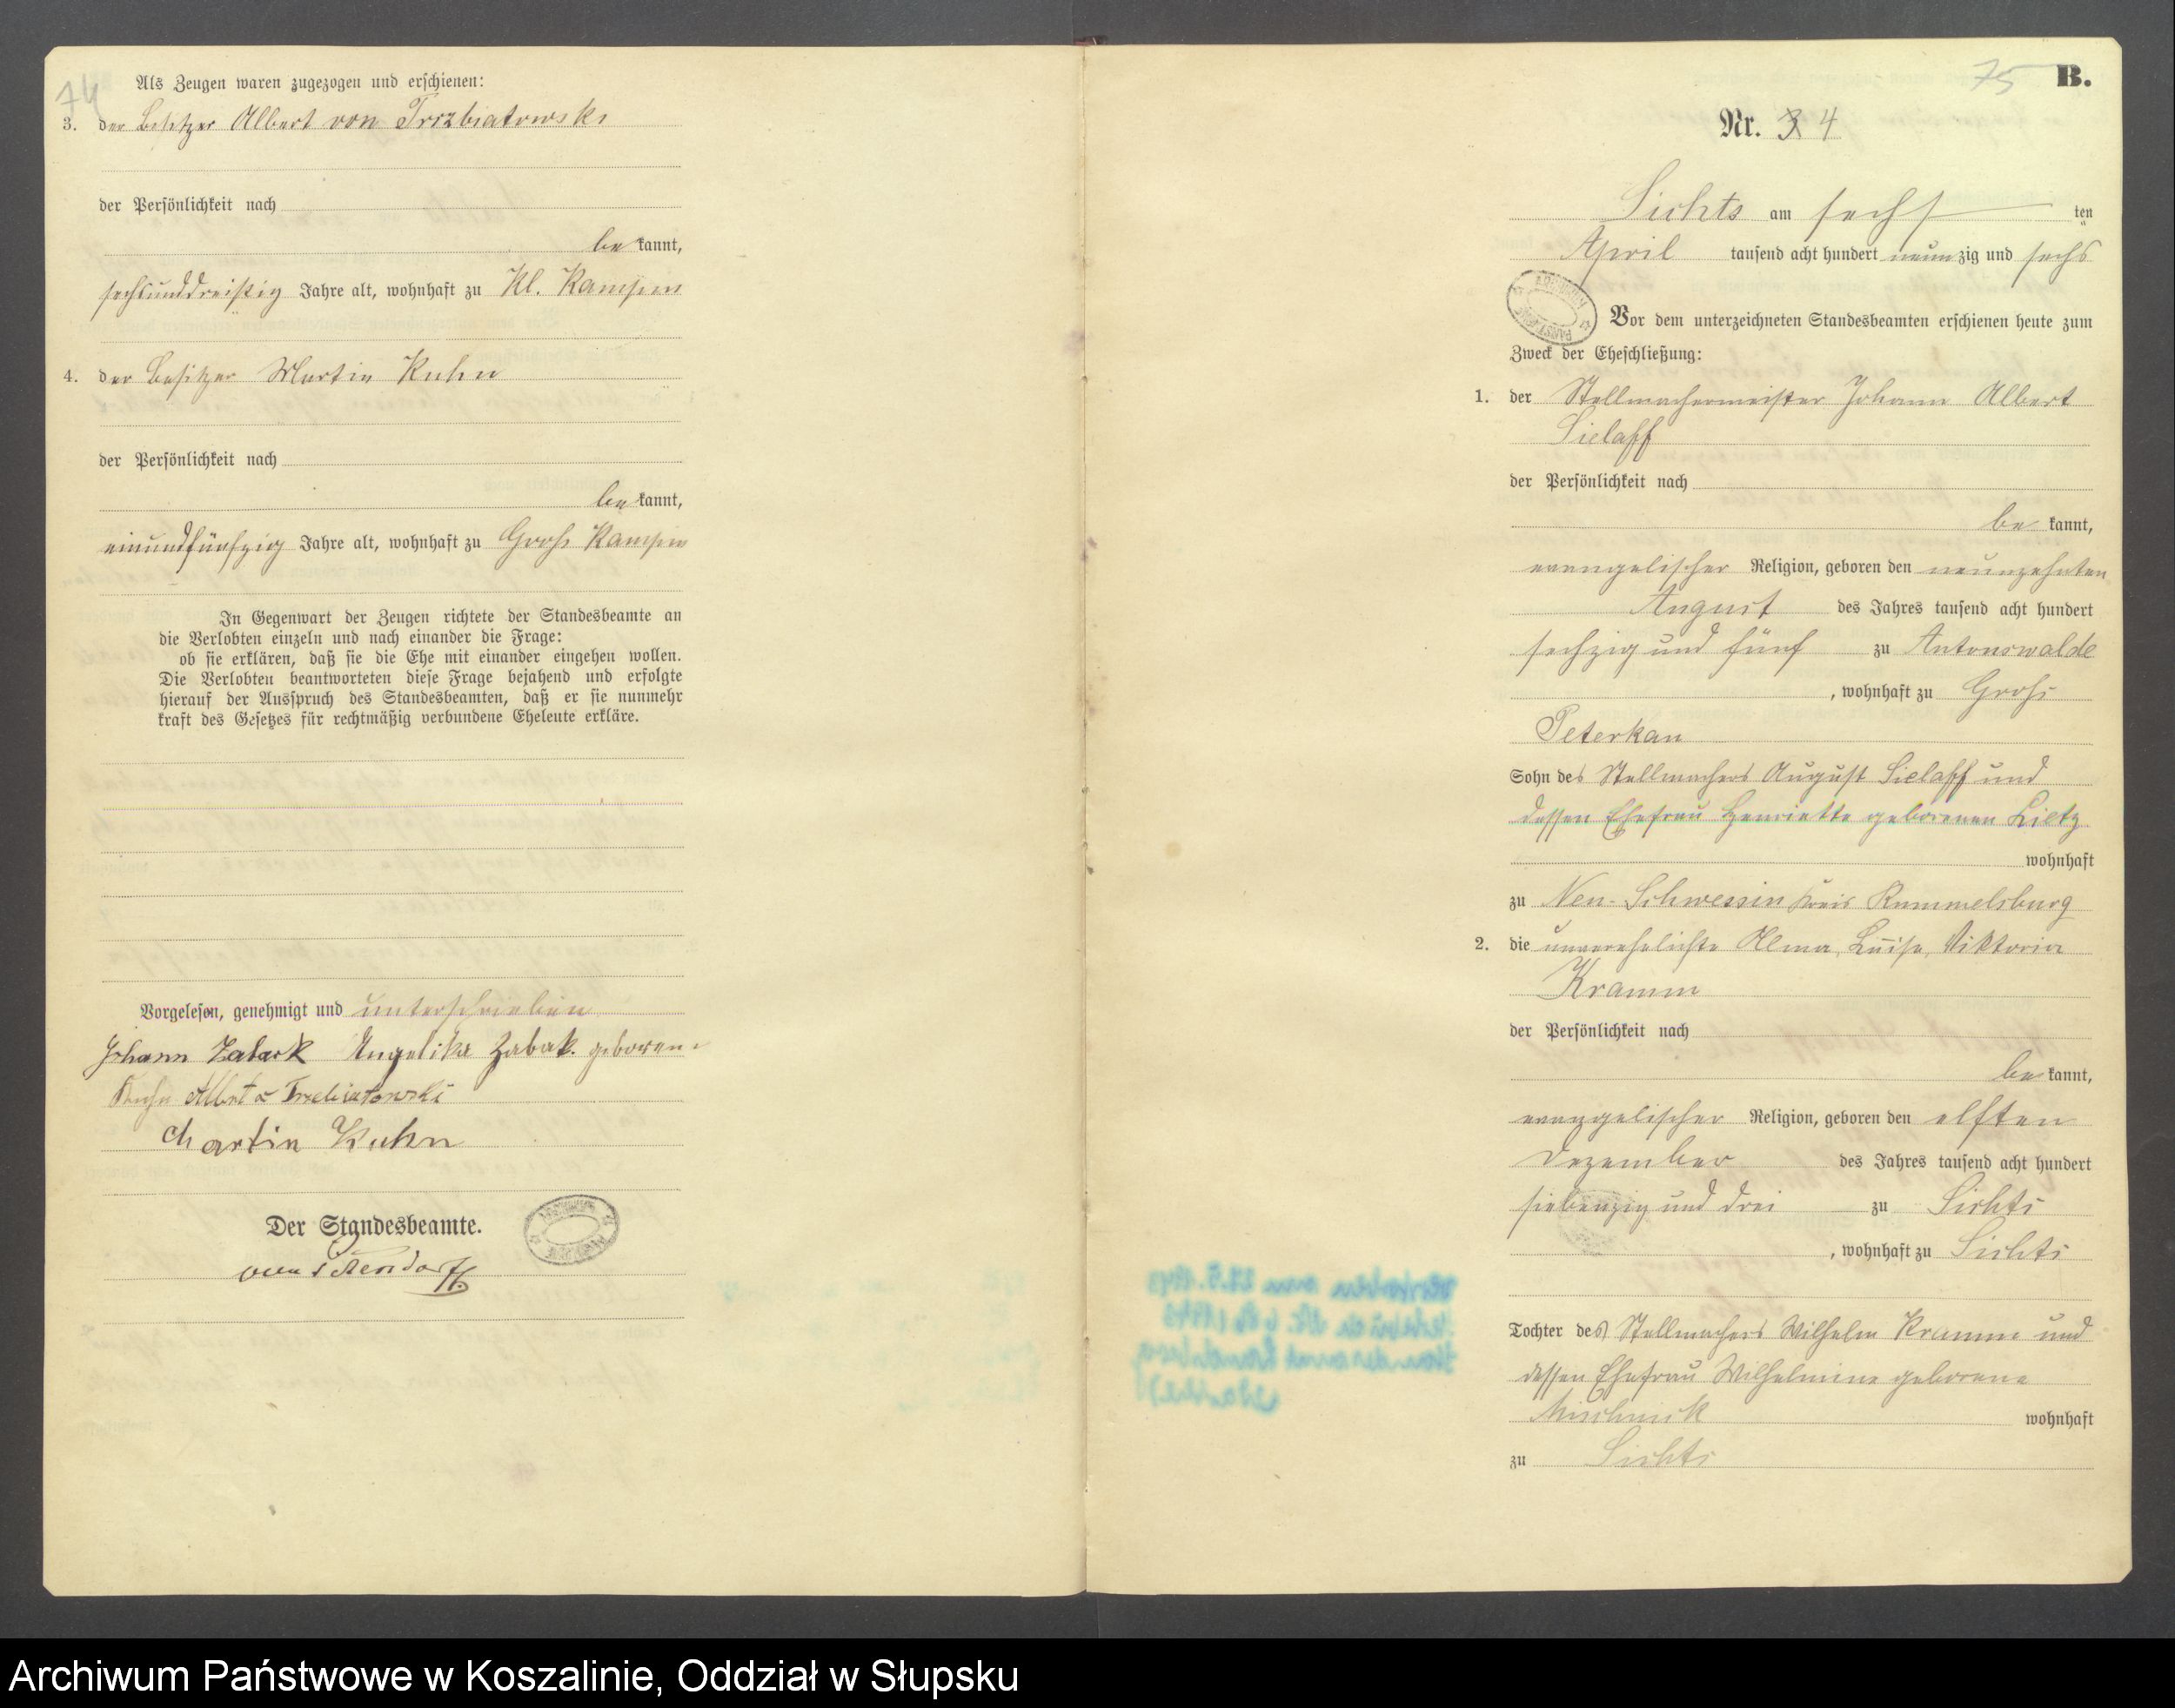 74
Als Zeugen waren zugezogen und erschienen:
3. der Besitzer Albert von Trzebiatowski
der Persönlichkeit nach
be kannt,
sechsunddreißig Jahre alt, wohnhaft zu Kl.
4. der Besitzer Martin Kuhn
der Persönlichkeit nach
be kannt,
einundfünfzig Jahre alt, wohnhaft zu Groß
In Gegenwart der Zeugen richtete der Standesbeamte an
die Verlobten einzeln und nach einander die Frage:
ob sie erklären, daß sie die Ehe mit einander eingehen wollen.
Die Verlobten beantworteten diese Frage bejahend und erfolgte
hierauf der Ausspruch des Standesbeamten, daß er sie nunmehr
kraft des Gesetzes für rechtmäßig verbundene Eheleute erkläre.
Vorgelesen, genehmigt und unterschrieben
Johann Angelika Zabak. geboren
Kuhn Albert v Trzebiatowski
Martin Kuhn
Der Standesbeamte.
75 B.
Nr. 3 4
Lichts am sechs ten
April tausend acht hundert neun zig und sechs
Vor dem unterzeichneten Standesbeamten erschienen heute zum
Zweck der Eheschließung:
1. der Stellmachermeister Johann Albert
Sielaff
der Persönlichkeit nach
be kannt,
evangelischer Religion, geboren den neunzehnten
August des Jahres tausend acht hundert
sechzig und fünf zu Antonswalde
, wohnhaft zu Groß
Peterkau
Sohn des Stellmachers August Sielaff und
dessen Ehefrau Henriette geborenen Lietz
wohnhaft
zu Neu-Schwessin Kreis Rummelsburg
2. die unverehelichte Alma, Luise, Viktoria
Kramm
der Persönlichkeit nach
be kannt,
evangelischer Religion, geboren den elften
Dezember des Jahres tausend acht hundert
siebenzig und drei zu Lichts
, wohnhaft zu Lichts
Tochter des Stellmachers Wilhelm Kramm und
dessen Ehefrau Wilhelmine geborene
Mischnick wohnhaft
zu Lichts
Archiwum Państwowe w Koszalinie, Oddział w Słupsku